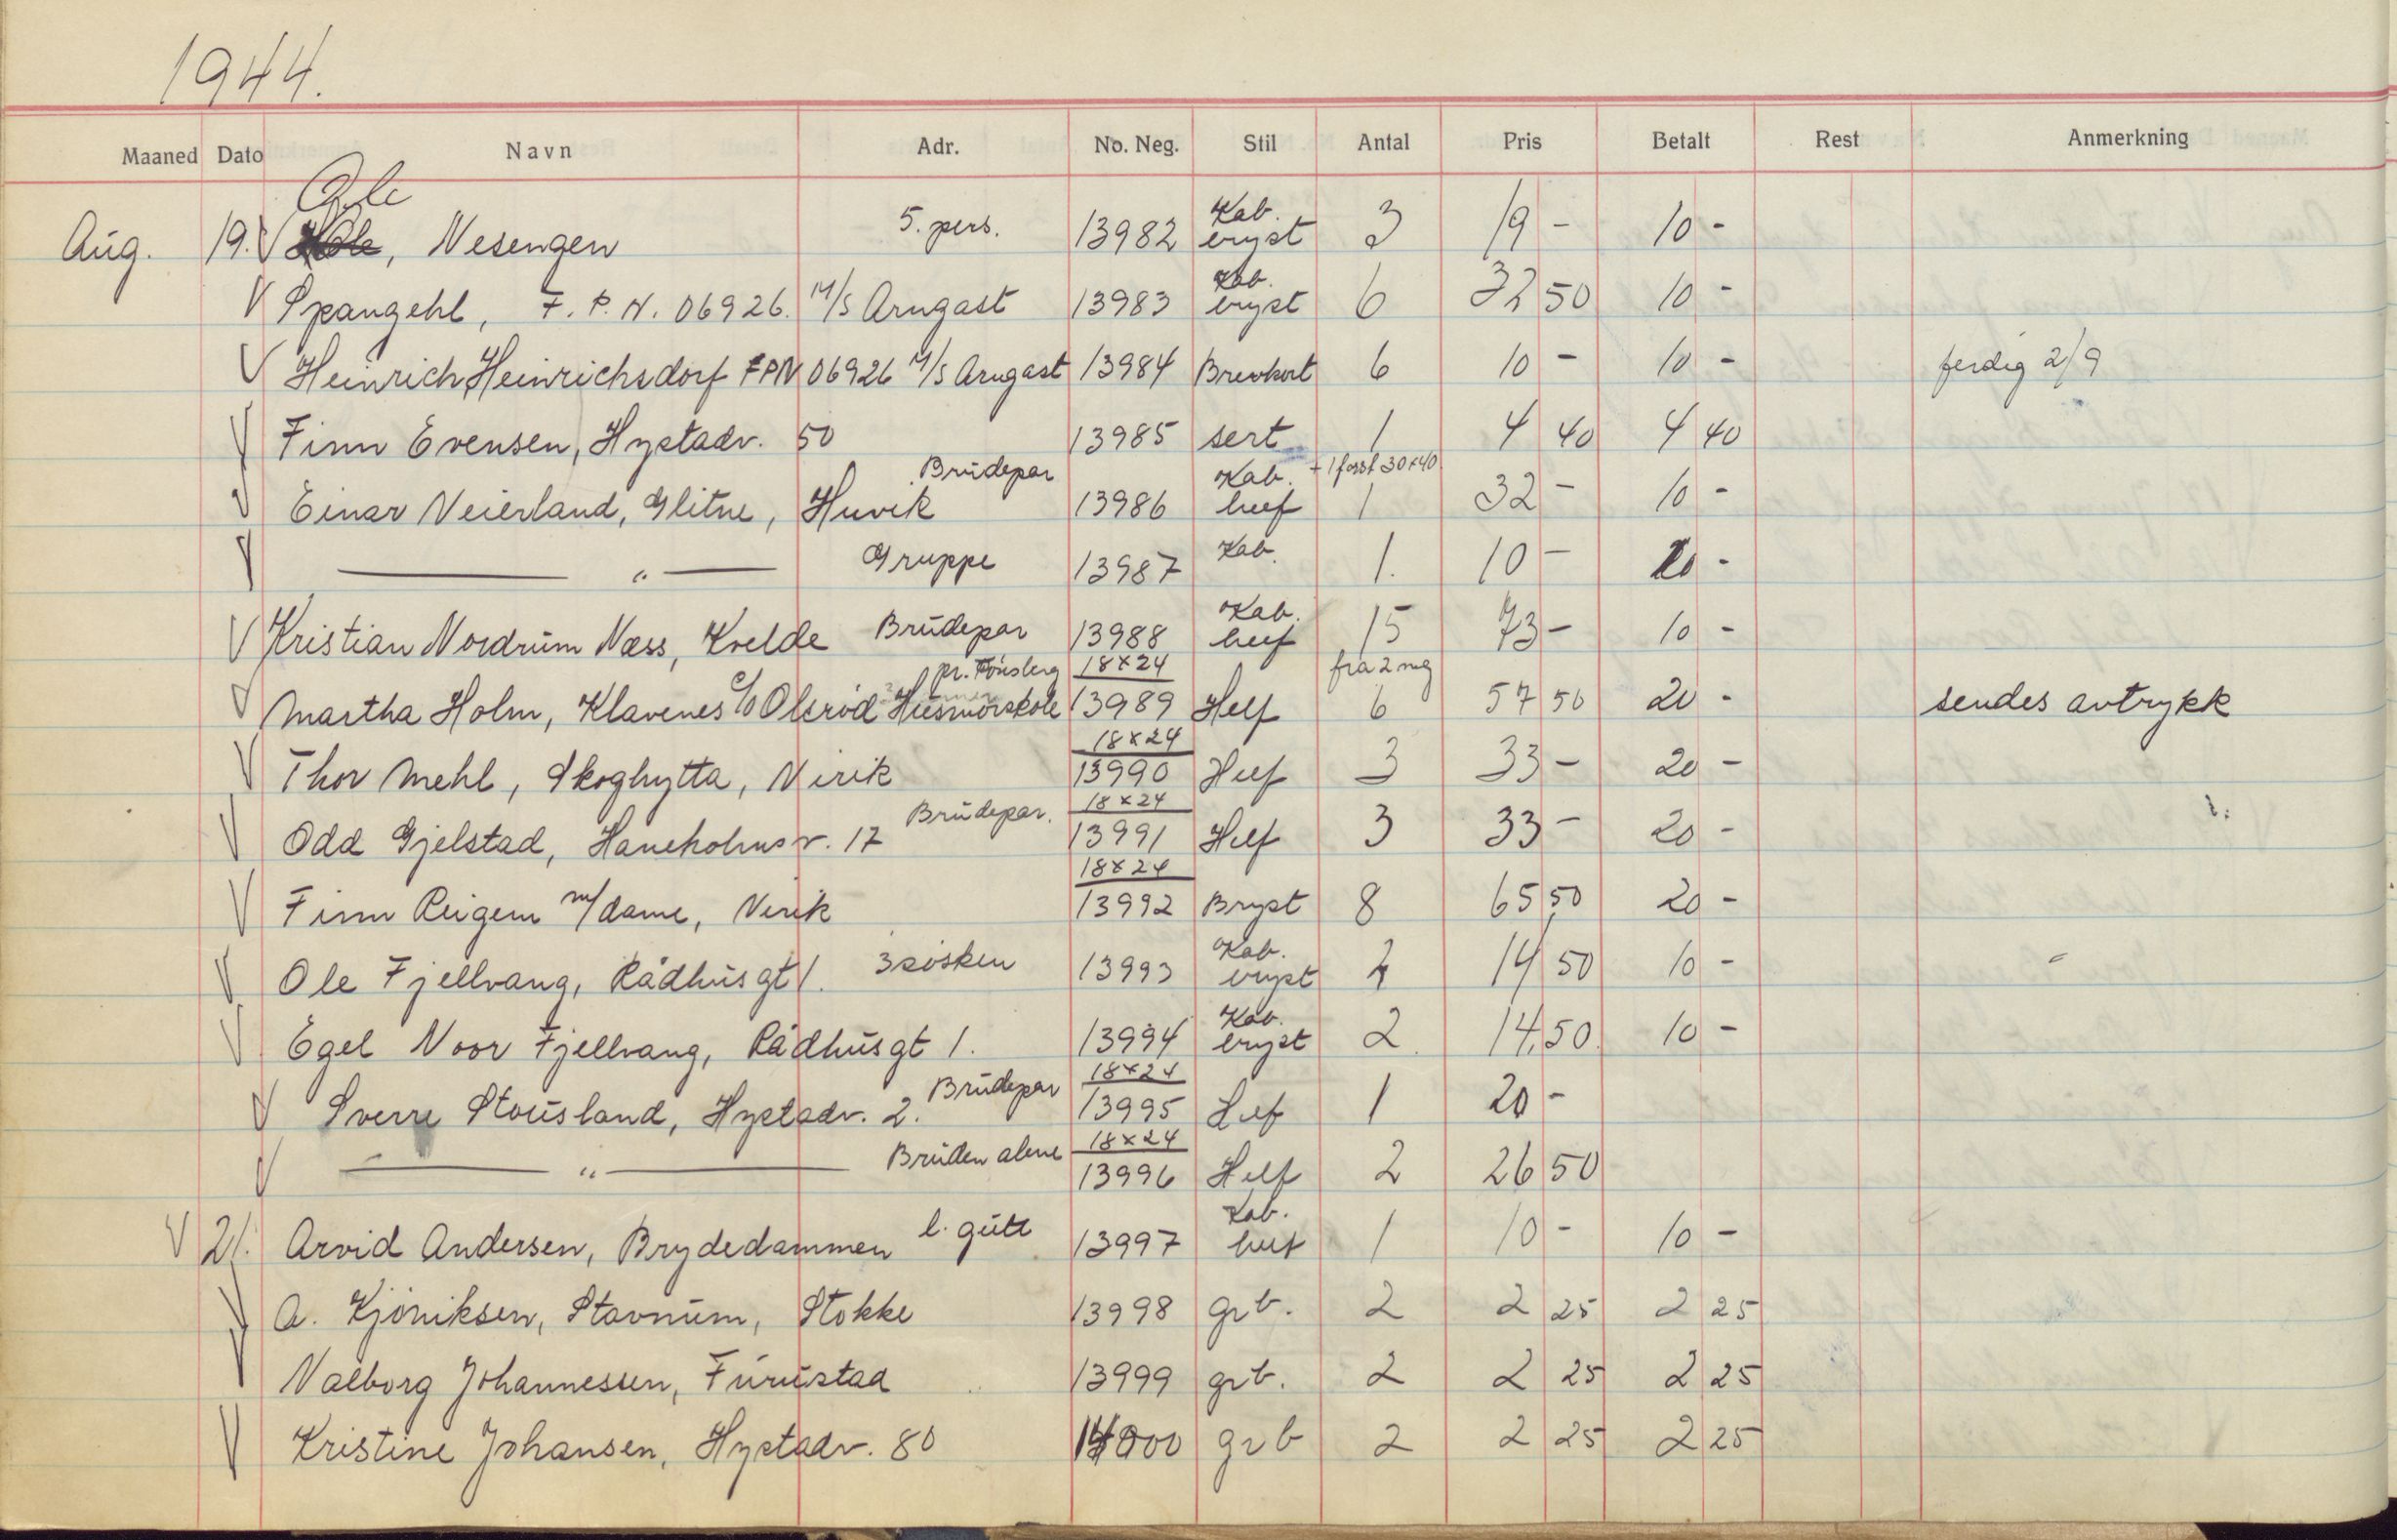 1944.
Maaned Dato Navn Adr. No. Neg. Stil Antal Pris Betalt Rest Anmerkning
Aug. 19. V Ole, Nesengen 5. pers. 13982 Kab. bryst 3 19 - 10 -
V Spangehl, F. P. N. 06926. M/S Arngast 13983 Kab. bryst 6 32 50 10 -
V Heinrich Heinrichsdorf FPN 06926 M/S Arngast 13984 Brevkort 6 10 - 10 - ferdig 2/9
V Finn Evensen, Hystadv. 50 13985 sert 1 4 40 4 40
V Einar Neierland, Glitne, Huvik Brudepar 13986 Kab. heef + 1 forst 30x40 1 32 - 10 -
V " Gruppe 13987 Kab. 1. 10 - 20 -
V Kristian Nordrum Næss, Kvelde Brudepar 13988 Kab. heef 15 73 - 10 -
V Martha Holm, Klavenes c/o Olsröd Husmorskole pr. Tönsberg 18x24 13989 Helf fra 2 neg 6 57 50 20 - sendes avtrykk
V Thor Mehl, Skoghytta, Virik 18x24 13990 Helf 3 33 - 20 -
V Odd Gjelstad, Haneholmsv. 17 Brudepar. 18x24 13991 Helf 3 33 - 20 -
V Finn Reigem m/dame, Virik 18x24 13992 Bryst 8 65 50 20 -
V Ole Fjellvang, Rådhusgt 1. 3 sösken 13993 Kab. bryst 2 14 50 10 -
V Egel Noor Fjellvang, Rådhusgt 1. 13994 Kab. bryst 2 14,50 10 -
V Sverre Stousland, Hystadv. 2. Brudepar 18x24 13995 Helf 1 20 -
V " Bruden alene 18x24 13996 Helf 2 26 50
V 21. Arvid Andersen, Brydedammen l. gutt 13997 Kab. heef 1 10 - 10 -
V A. Kjöniksen, Stavnum, Stokke 13998 grb. 2 2 25 2 25
V Valborg Johannessen, Furustad 13999 grb. 2 2 25 2 25
V Kristine Johansen, Hystadv. 80 14000 grb 2 2 25 2 25